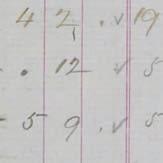 4 2 . v 19
. 12 v 5
5 9 . v 5